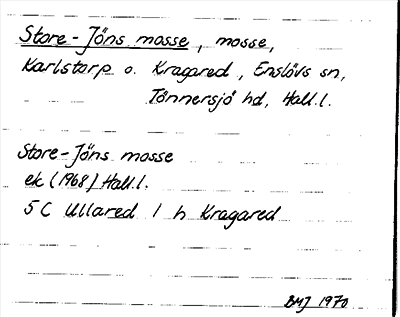 Store-Jöns mosse, mosse,
Karlstorp o. Kragared, Enslövs sn,
Tönnersjö hd, Hall.l.
Store-Jöns mosse
ek (1968) Hall.l.
5 C Ullared 1 h Kragared
BMJ 1970